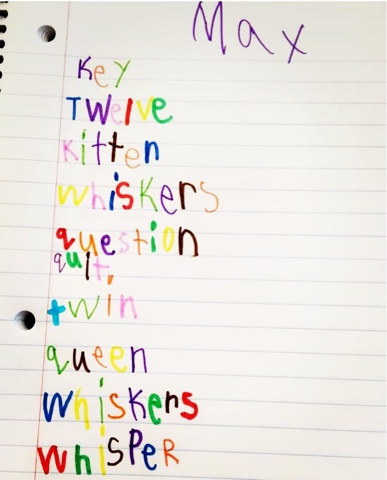 Max
Key
Twelve
Kitten
Whiskers
question
quit,
twin
queen
Whiskers
WhisPeR